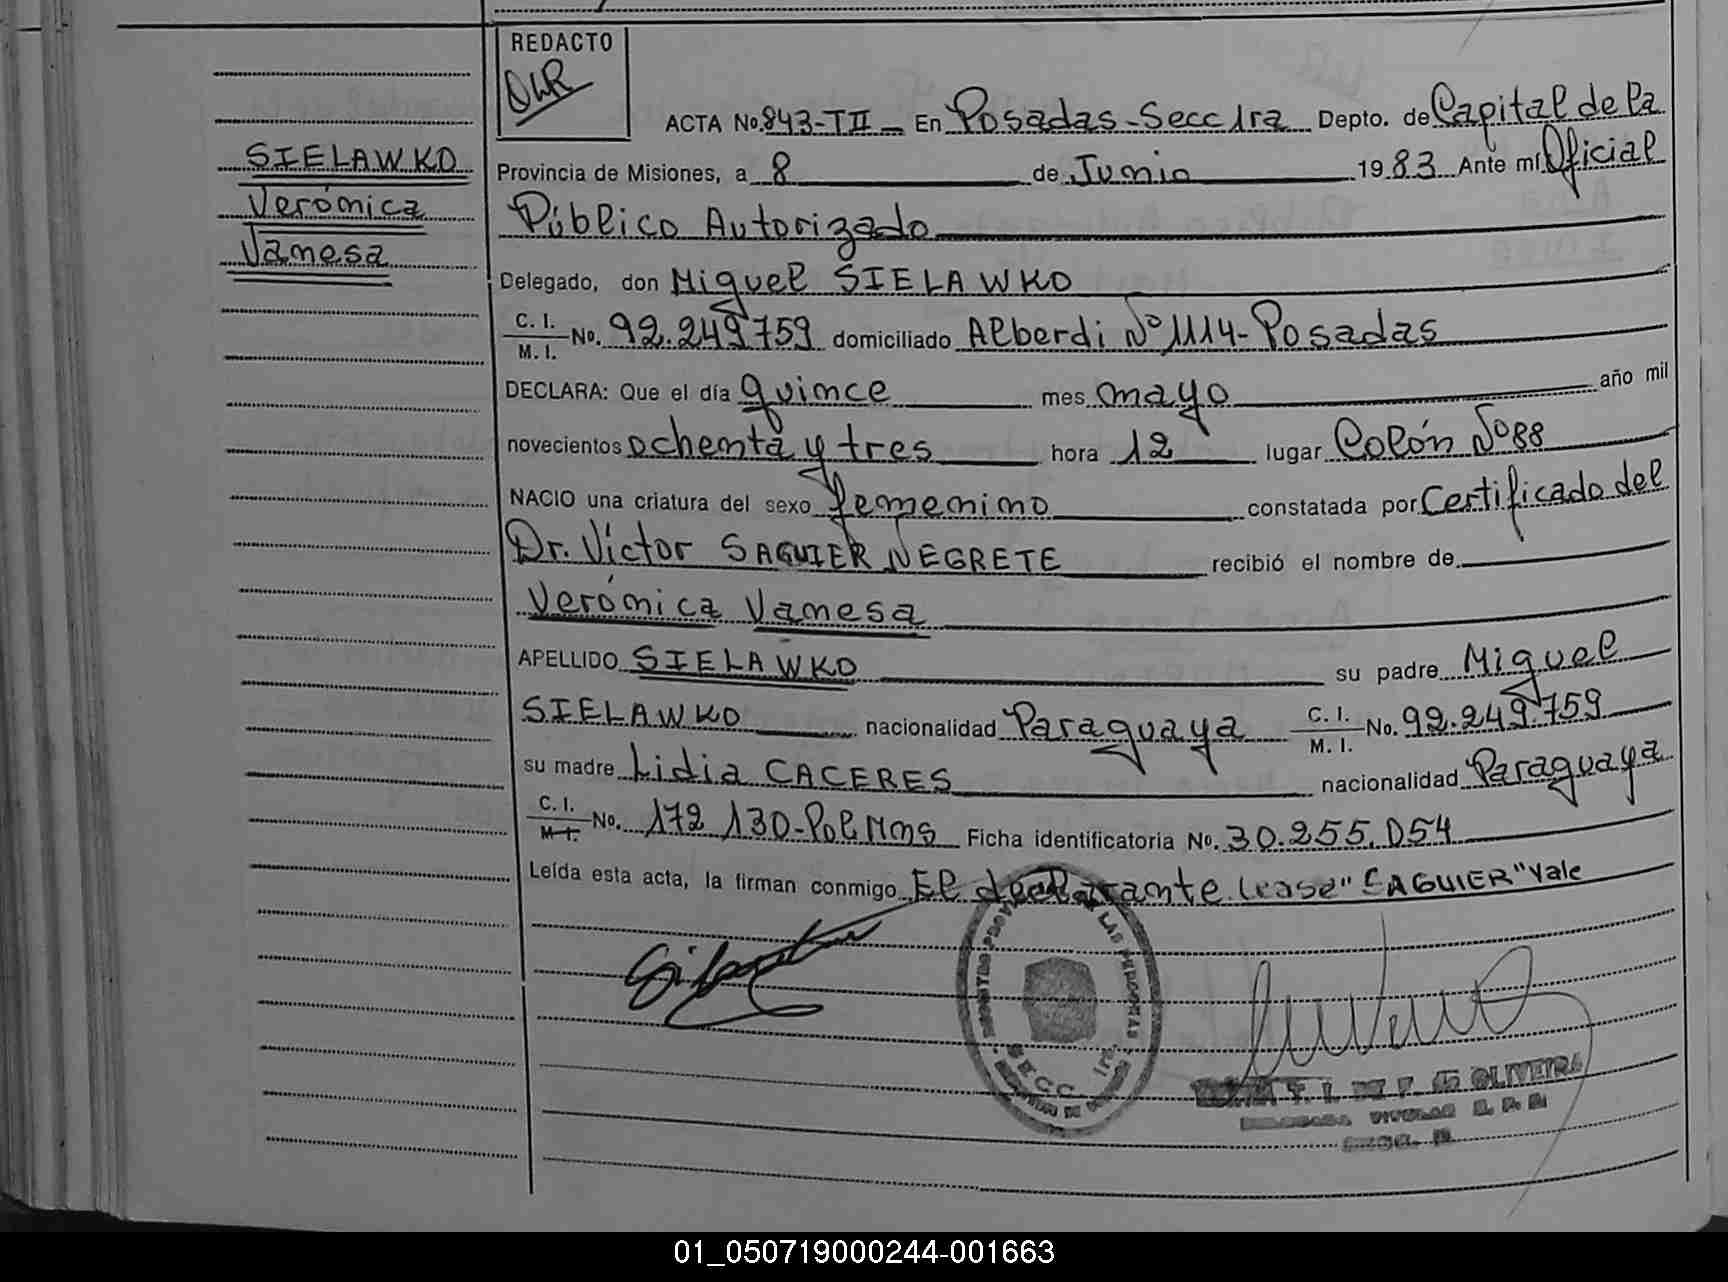 REDACTO
ACTA No. 843-TII En Posadas-Secc 1ra Depto. de Capital de la
SIELAWKO
Verónica
Vanesa
Provincia de Misiones, a 8 de Junio 1983 Ante mí Oficial
Público Autorizado
Delegado, don Miguel SIELAWKO
C. I.
M. I. No. 92.249.759 domiciliado Alberdi Nº 1114-Posadas
DECLARA: Que el día quince mes mayo año mil
novecientos ochenta y tres hora 12 lugar Colón Nº 88
NACIO una criatura del sexo femenino constatada por Certificado del
Dr. Víctor SAGUIER NEGRETE recibió el nombre de
Verónica Vanesa
APELLIDO SIELAWKO su padre Miguel
SIELAWKO nacionalidad Paraguaya C. I. M. I. No. 92.249.759
su madre Lidia CACERES nacionalidad Paraguaya
C. I.
M. I. No. 172 130-Pol Mns Ficha identificatoria No. 30.255.054
Leída esta acta, la firman conmigo El declarante. Lease "SAGUIER" Vale
LAS PERSONAS
SECC. 1ra.
OLIVEIRA
01_050719000244-001663